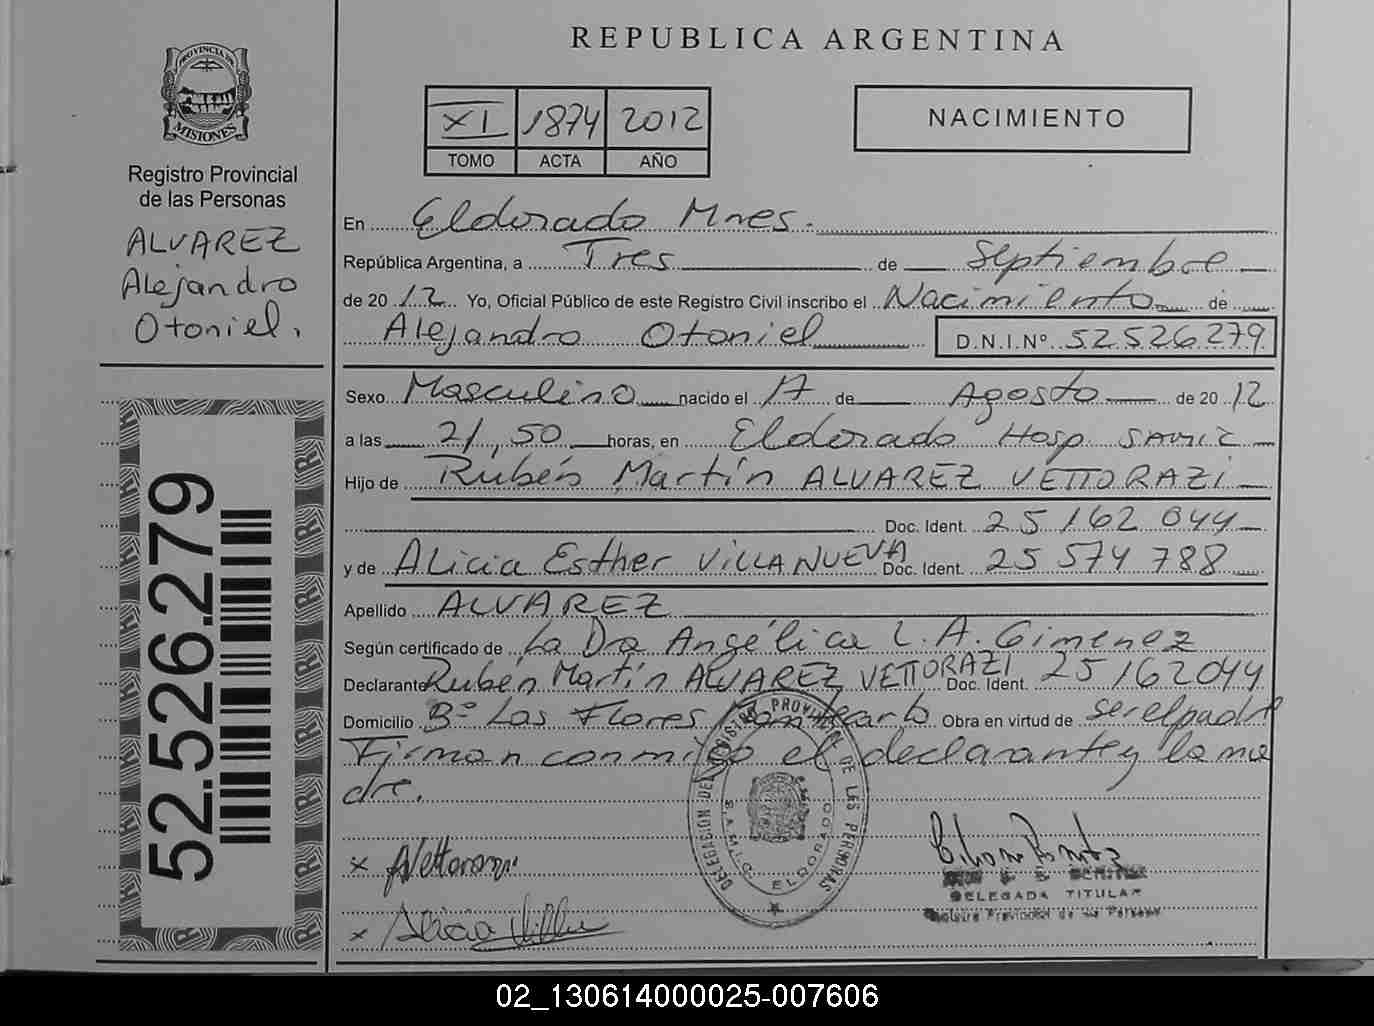 REPUBLICA ARGENTINA
PROVINCIA DE
MISIONES
Registro Provincial
de las Personas
ALVAREZ
Alejandro
Otoniel.
XI 1874 2012
TOMO ACTA AÑO
NACIMIENTO
En Eldorado Mnes.
República Argentina, a Tres de Septiembre
de 2012 Yo, Oficial Público de este Registro Civil inscribo el Nacimiento de
Alejandro Otoniel D.N.I.Nº 52526279
Sexo Masculino nacido el 17 de Agosto de 2012
a las 21,50 horas, en Eldorado Hosp SAMIC
Hijo de Rubén Martín ALVAREZ VETTORAZI
Doc. Ident. 25 162 044
y de Alicia Esther VILLANUEVA Doc. Ident. 25 574 788
Apellido ALVAREZ
Según certificado de La Dra Angélica L. A. Gimenez
Declarante Rubén Martín ALVAREZ VETTORAZI Doc. Ident. 25162044
Domicilio Bº Las Flores Montecarlo Obra en virtud de ser el padre
Firman conmigo el declarante y la ma
dre.
52.526.279
DELEGACIÓN DEL REGISTRO PROVINCIAL DE LAS PERSONAS
S.A.M.I.C. ELDORADO
DELEGADA TITULAR
Registro Provincial de las Personas
02_130614000025-007606